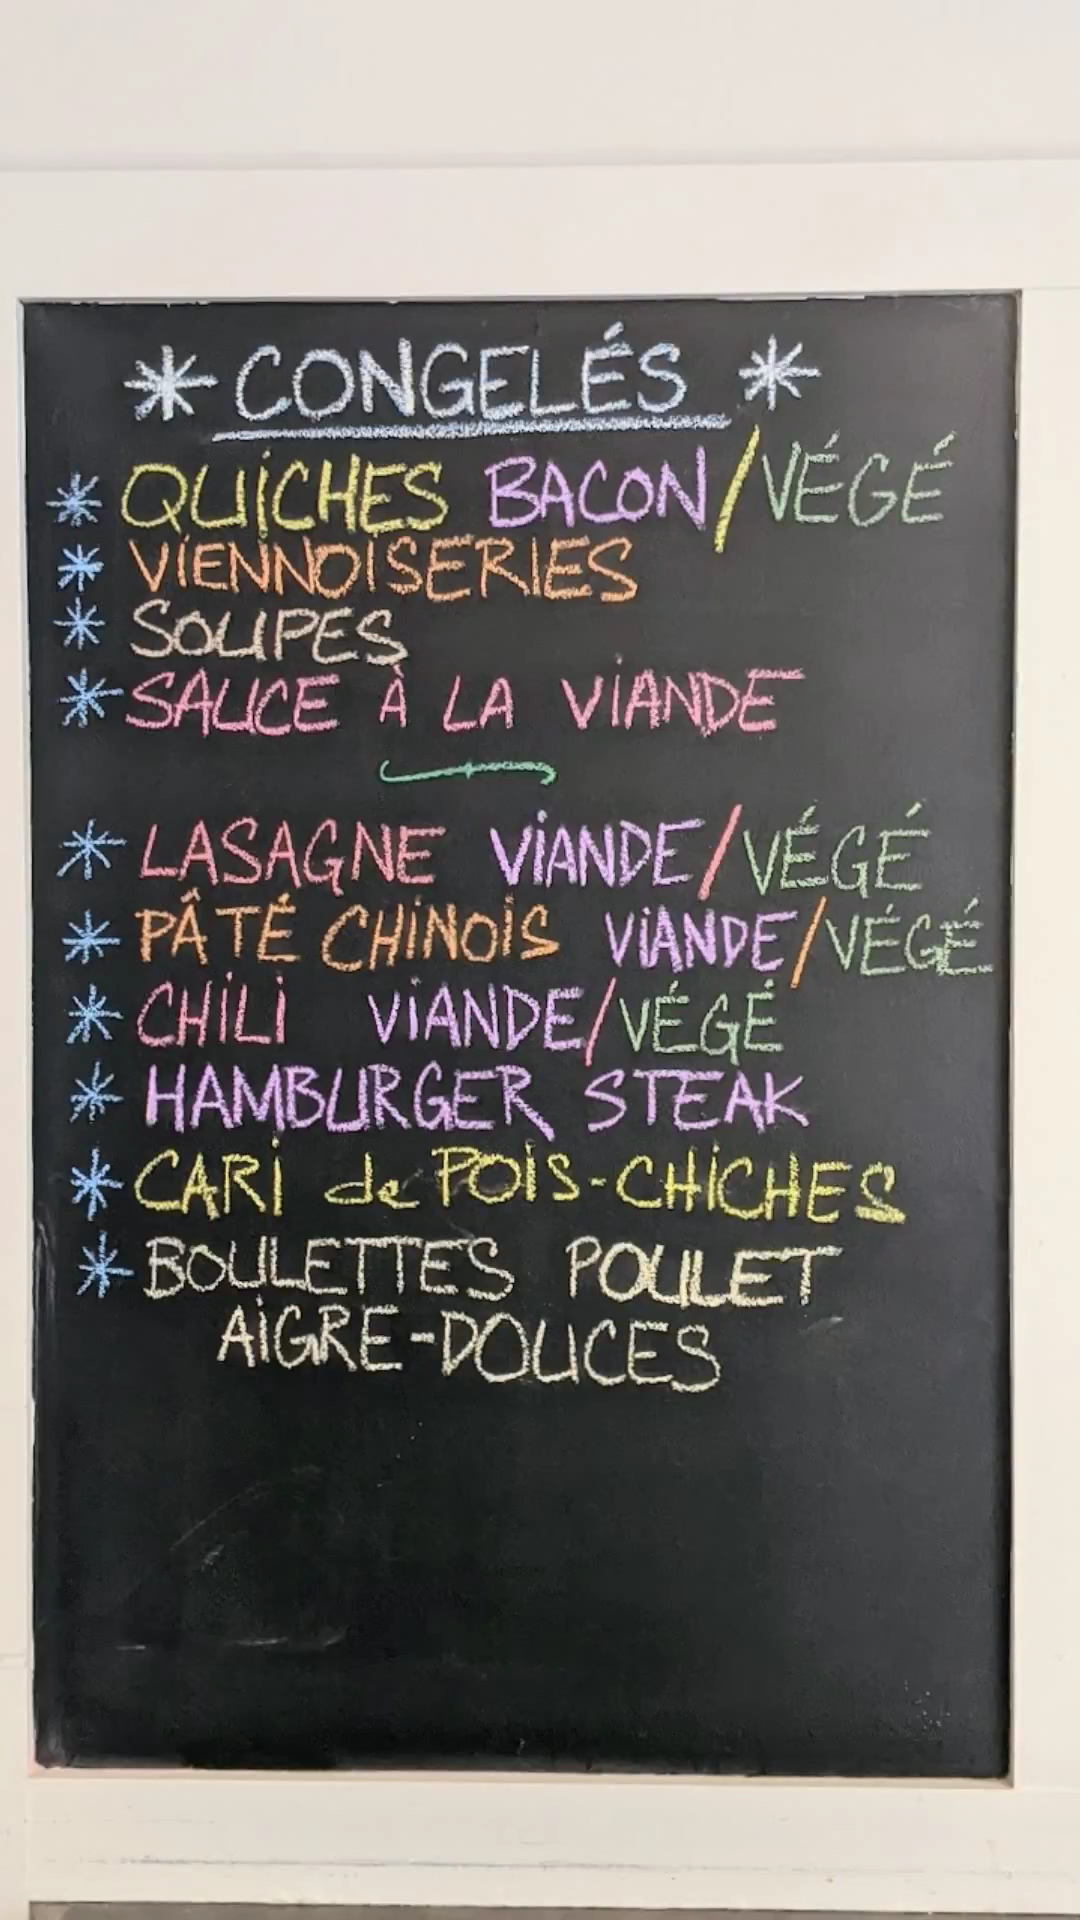 * CONGELÉS *
* QUICHES BACON/VÉGÉ
* VIENNOISERIES
* SOUPES
* SAUCE À LA VIANDE
* LASAGNE VIANDE/VÉGÉ
* PÂTÉ CHINOIS VIANDE/VÉGÉ
* CHILI VIANDE/VÉGÉ
* HAMBURGER STEAK
* CARI de POIS-CHICHES
* BOULETTES POULET
AIGRE-DOUCES